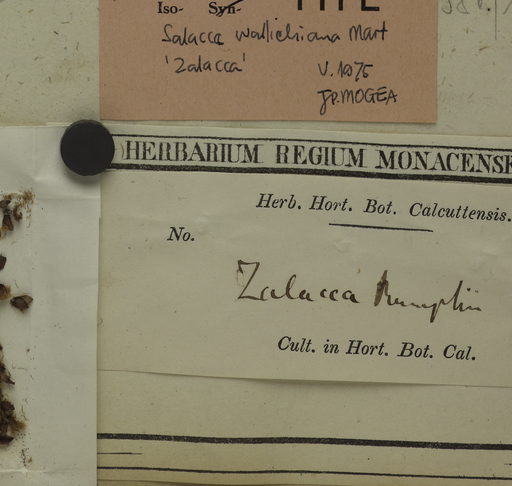 Iso- Syn- TYPE
Salacca wallichiana Mart
'Zalacca' V.1975
JP. MOGEA
HERBARIUM REGIUM MONACENSE
Herb. Hort. Bot. Calcuttensis.
No.
Zalacca Rumphii
Cult. in Hort. Bot. Cal.